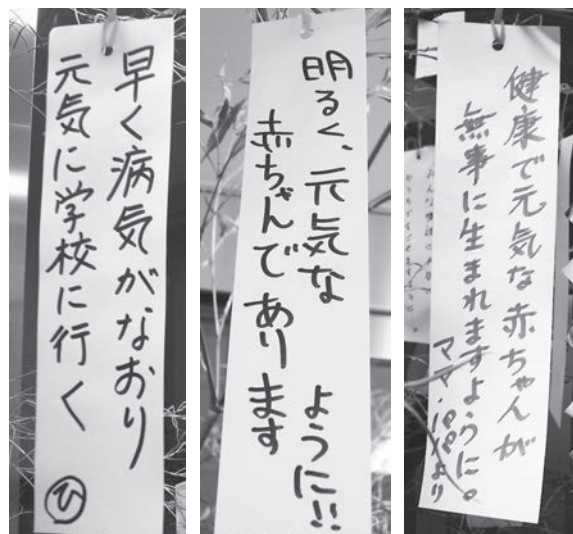 早く病気がなおり
元気に学校に行く
ひ
明るく、元気な
赤ちゃんであります
ように!!
健康で元気な赤ちゃんが
無事に生まれますように。
ママ・パパより